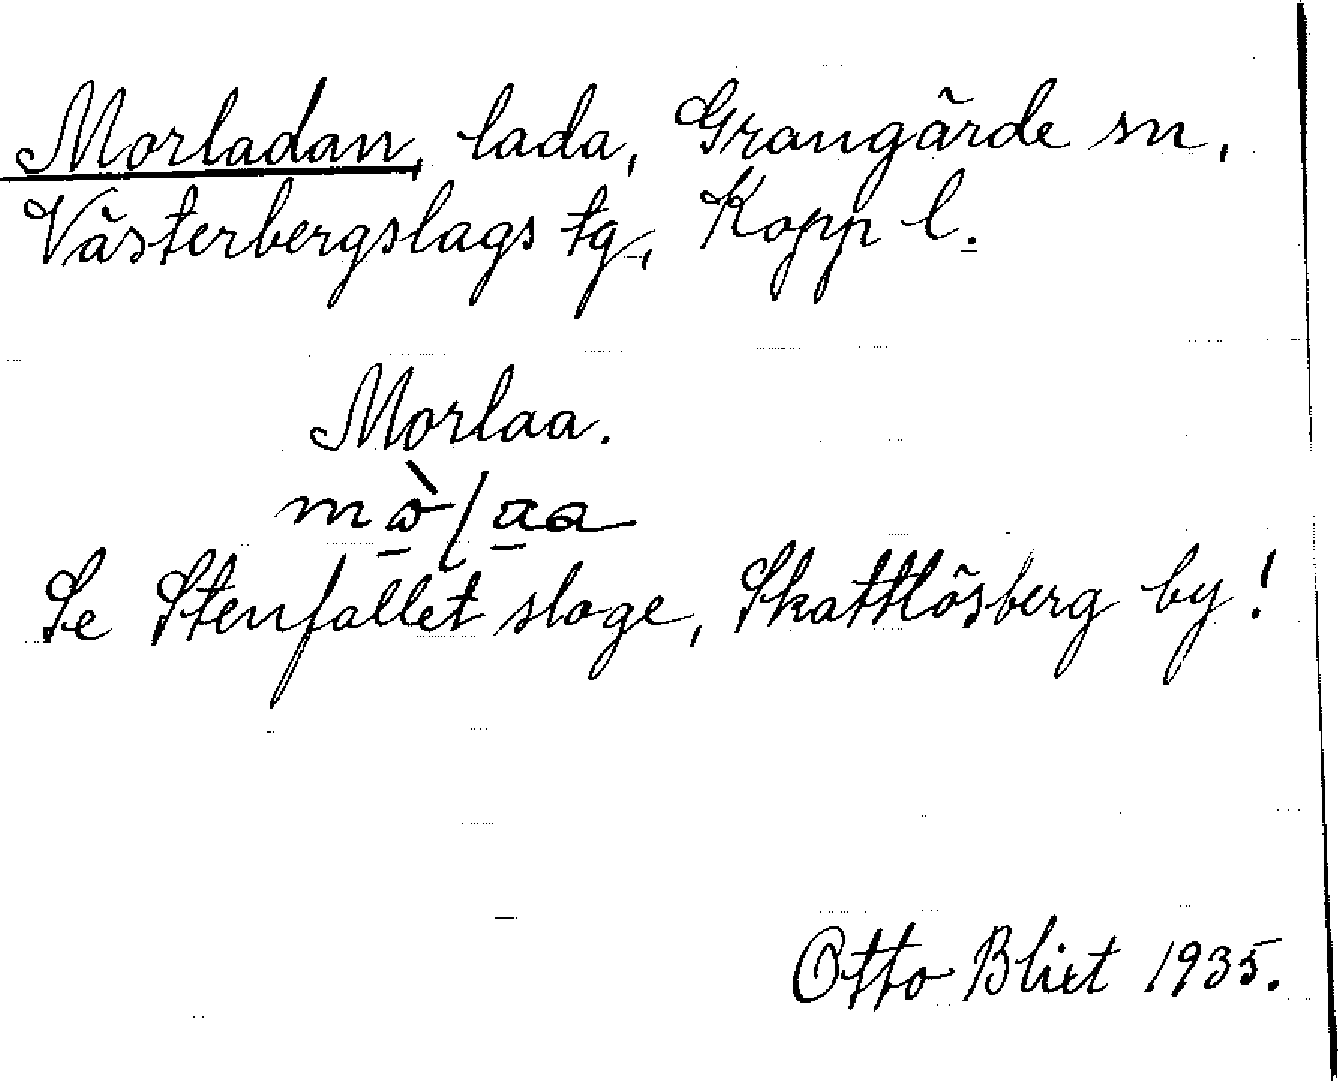 Morladan, lada, Grangärde sn,
Västerbergslags tg., Kopp l.
Morlaa.
Se Stenfallet sloge, Skattlösberg by!
Otto Blixt 1935.